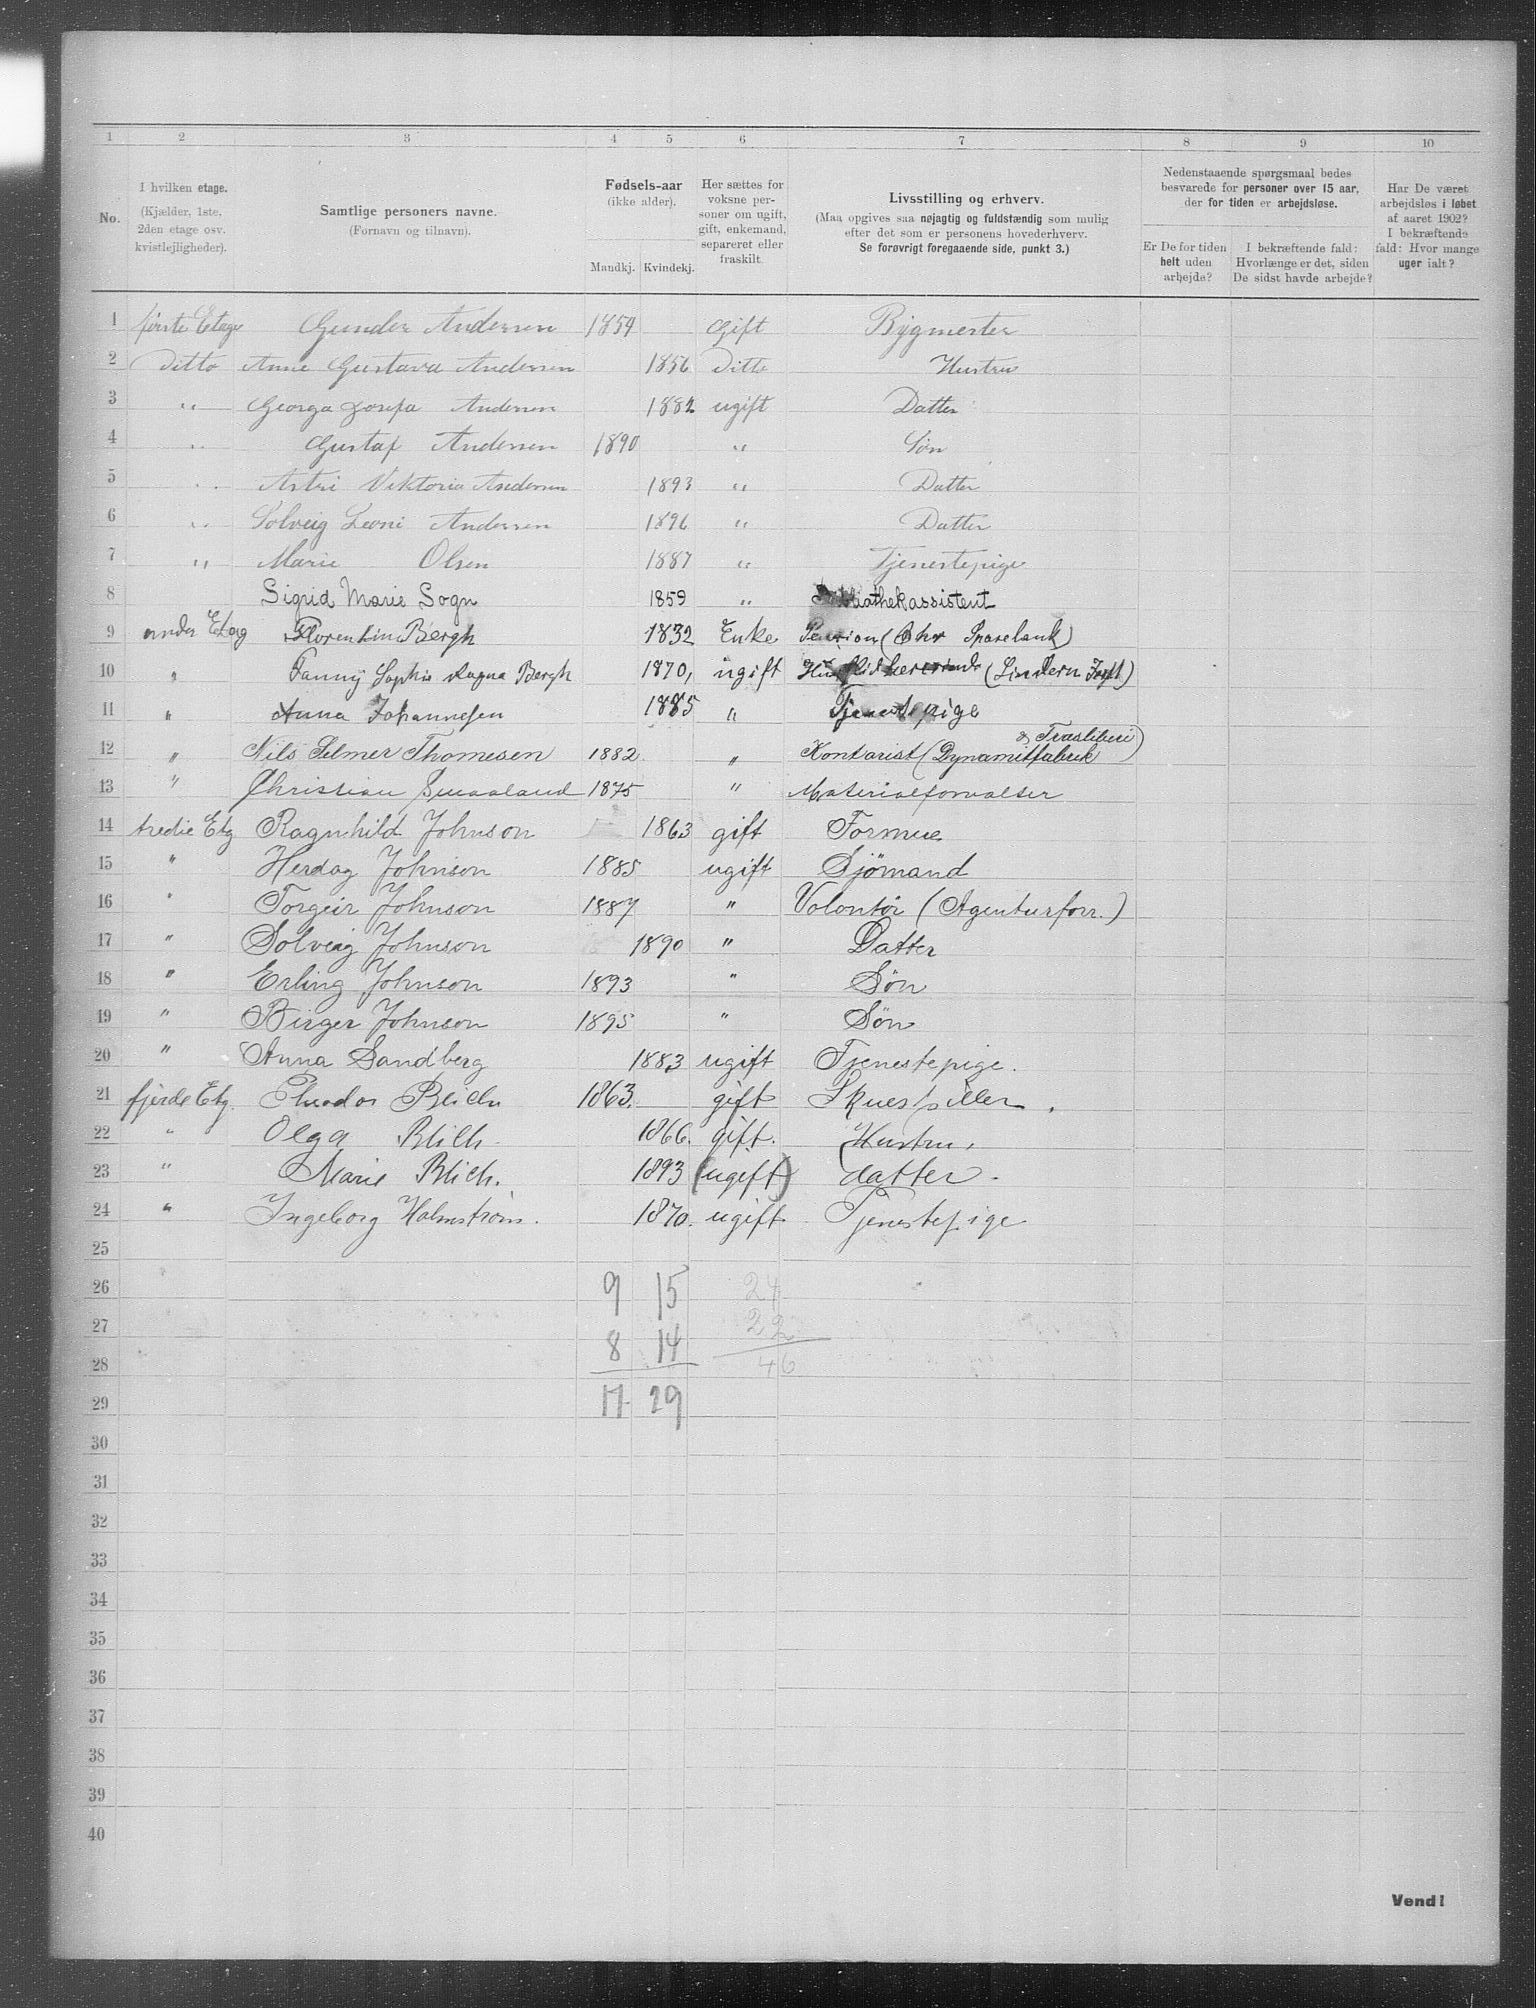 1 2 3 4 5 6 7 8 9 10
No.
I hvilken etage.
(Kjælder, 1ste,
2den etage osv.
kvistlejligheder).
Samtlige personers navne.
(Fornavn og tilnavn).
Fødsels-aar
(ikke alder).
Mandkj. Kvindekj.
Her sættes for
voksne per-
soner om ugift,
gift, enkemand,
separeret eller
fraskilt.
Livsstilling og erhverv.
(Maa opgives saa nøjagtig og fuldstændig som mulig
efter det som er personens hovederhverv.
Se forøvrigt foregaaende side, punkt 3.)
Nedenstaaende spørgsmaal bedes
besvarede for personer over 15 aar,
der for tiden er arbejdsløse.
Er De for tiden
helt uden
arbejde?
I bekræftende fald:
Hvorlænge er det, siden
De sidst havde arbejde?
Har De været
arbejdsløs i løbet
af aaret 1902?
I bekræftende
fald: Hvor mange
uger ialt?
1 første Etage Gunder Andersen 1854 Gift Bygmester
2 Ditto Anne Gustava Andersen 1856 Ditto Hustru
3 " Georga Josefa Andersen 1882 ugift Datter
4 " Gustaf Andersen 1890 " Søn
5 " Astri Viktoria Andersen 1893 " Datter
6 " Solveig Leoni Andersen 1896 " Datter
7 " Marie Olsen 1887 " Tjenestepige
8 Sigrid Marie Sogn 1859 "
9 anden Etag Florentin Bergh 1832 Enke Pension (Chr Sparebank)
10 " Fanny Sophie Ragna Bergh 1870, ugift
11 " Anna Johannesen 1885 " Tjenestepige
12 " Nils Selmer Thomesen 1882 " Kontorist (Dynamitfabrik & Træsliberi)
13 " Christian Smaaland 1875 " Materialforvalter
14 tredie Etg Ragnhild Johnson 1863 gift Formue
15 " Herdag Johnson 1885 ugift Sjömand
16 " Torgeir Johnson 1887 " Volontør (Agenturforr.)
17 " Solveig Johnson 1890 " Datter
18 " Erling Johnson 1893 " Søn
19 " Birger Johnson 1895 " Søn
20 " Anna Sandberg 1883 ugift Tjenestepige.
21 fjerde Etg. Theodor Blich 1863. gift Skuespiller.
22 " Olga Blich. 1866. gift. Hustru.
23 " Marie Blich. 1893 (ugift) datter.
24 " Ingeborg Holmstrøm. 1870. ugift Tjenestepige
25
26 9 15 24
27 22
28 8 14 46
29 17 29
30
31
32
33
34
35
36
37
38
39
40
Vend!